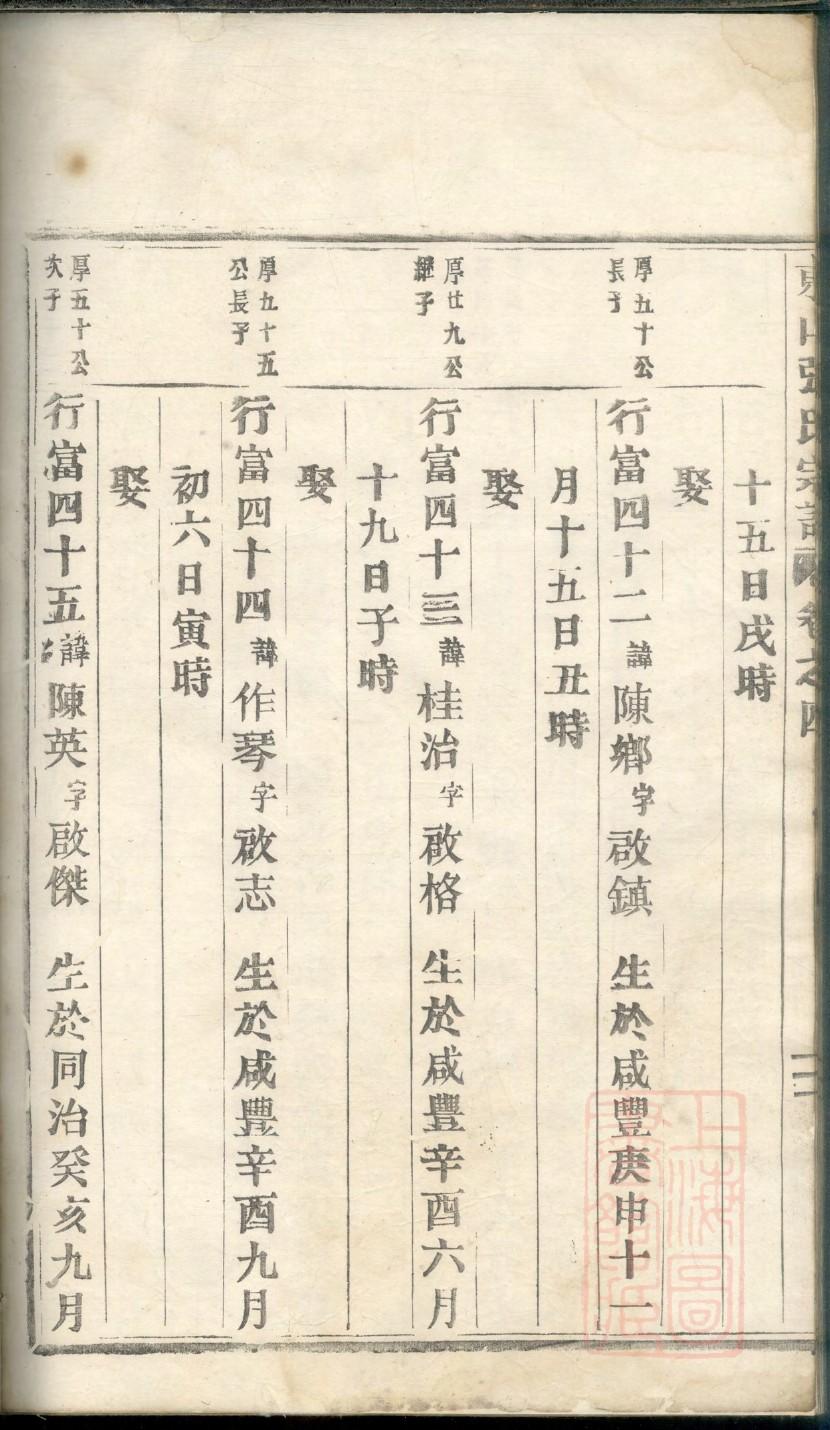 東山張氏宗譜卷之四
十五日戌時
娶
厚五十公長子
行富四十二諱陳鄉字啟鎮 生於咸豐庚申十一
月十五日丑時
娶
厚廿九公繼子
行富四十三諱桂治字啟格 生於咸豐辛酉六月
十九日子時
娶
厚九十五公長子
行富四十四諱作琴字啟志 生於咸豐辛酉九月
初六日寅時
娶
厚五十公次子
行富四十五諱陳英字啟傑 生於同治癸亥九月
上海圖書館藏